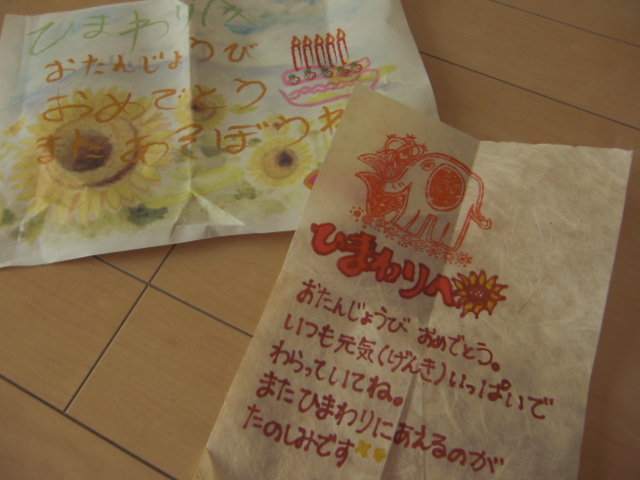 ひまわりへ
おたんじょうび
おめでとう
またあそぼうね
ひまわりへ
おたんじょうび おめでとう。
いつも元気(げんき)いっぱいで
わらっていてね。
またひまわりにあえるのが
たのしみです